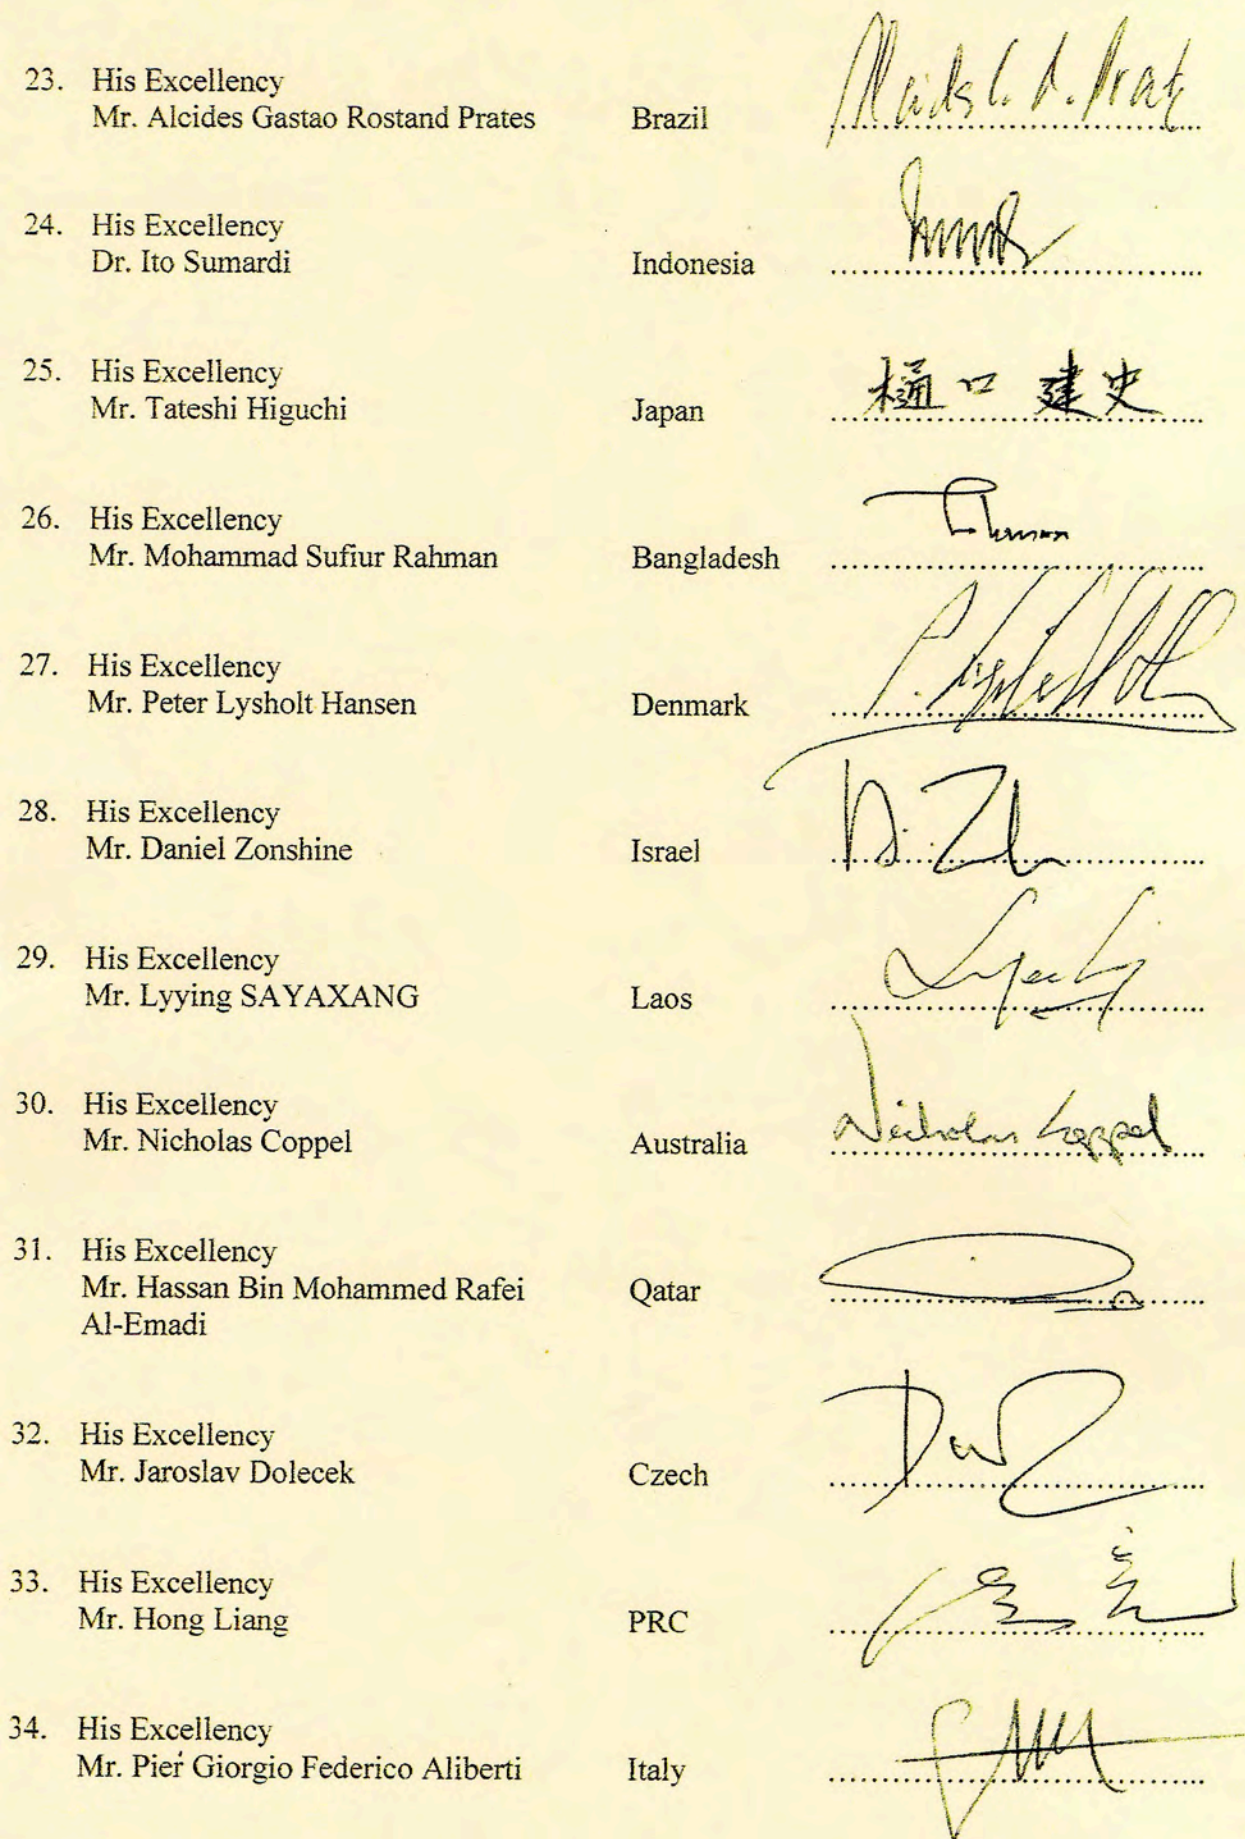 23. His Excellency
Mr. Alcides Gastao Rostand Prates Brazil
24. His Excellency
Dr. Ito Sumardi Indonesia
25. His Excellency
Mr. Tateshi Higuchi Japan 樋口 建史
26. His Excellency
Mr. Mohammad Sufiur Rahman Bangladesh
27. His Excellency
Mr. Peter Lysholt Hansen Denmark
28. His Excellency
Mr. Daniel Zonshine Israel
29. His Excellency
Mr. Lyying SAYAXANG Laos
30. His Excellency
Mr. Nicholas Coppel Australia Nicholas Coppel
31. His Excellency
Mr. Hassan Bin Mohammed Rafei Qatar
Al-Emadi
32. His Excellency
Mr. Jaroslav Dolecek Czech
33. His Excellency
Mr. Hong Liang PRC
34. His Excellency
Mr. Pier Giorgio Federico Aliberti Italy